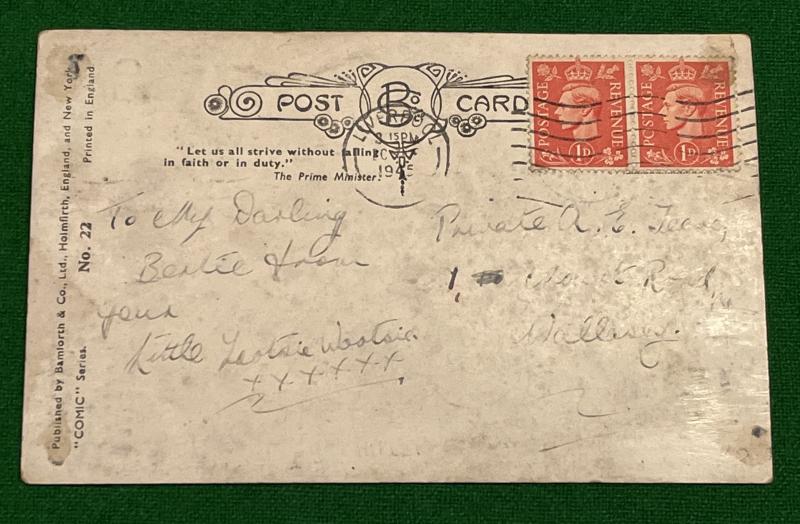 POST CARD
LIVERPOOL
2 15PM
1945
POSTAGE REVENUE
1D
POSTAGE REVENUE
1D
"Let us all strive without failing
in faith or in duty."
The Prime Minister.
Published by Bamforth & Co., Ltd., Holmfirth, England, and New York
"COMIC" Series. No. 22 Printed in England
To My Darling
Bertie from
your
Little Tootsie Wootsie
x x x x x x
Private A. E.
1, Road,
Wallasey.